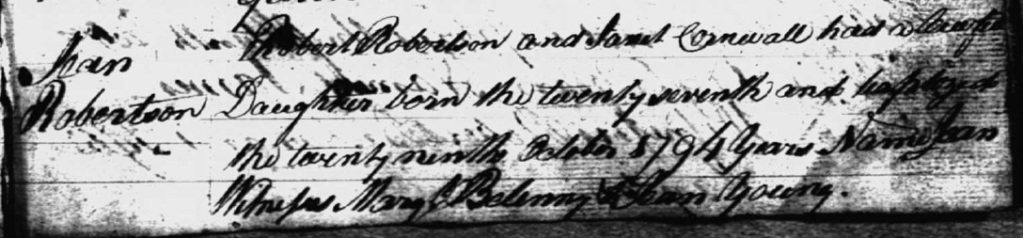 Jean
Robertson
Robert Robertson and Janet Cornwall had a Lawful
Daughter born the twenty seventh and baptized
the twenty ninth October 1794 Years Name Jean
Witnesses Mary Balenny & Jean Young.